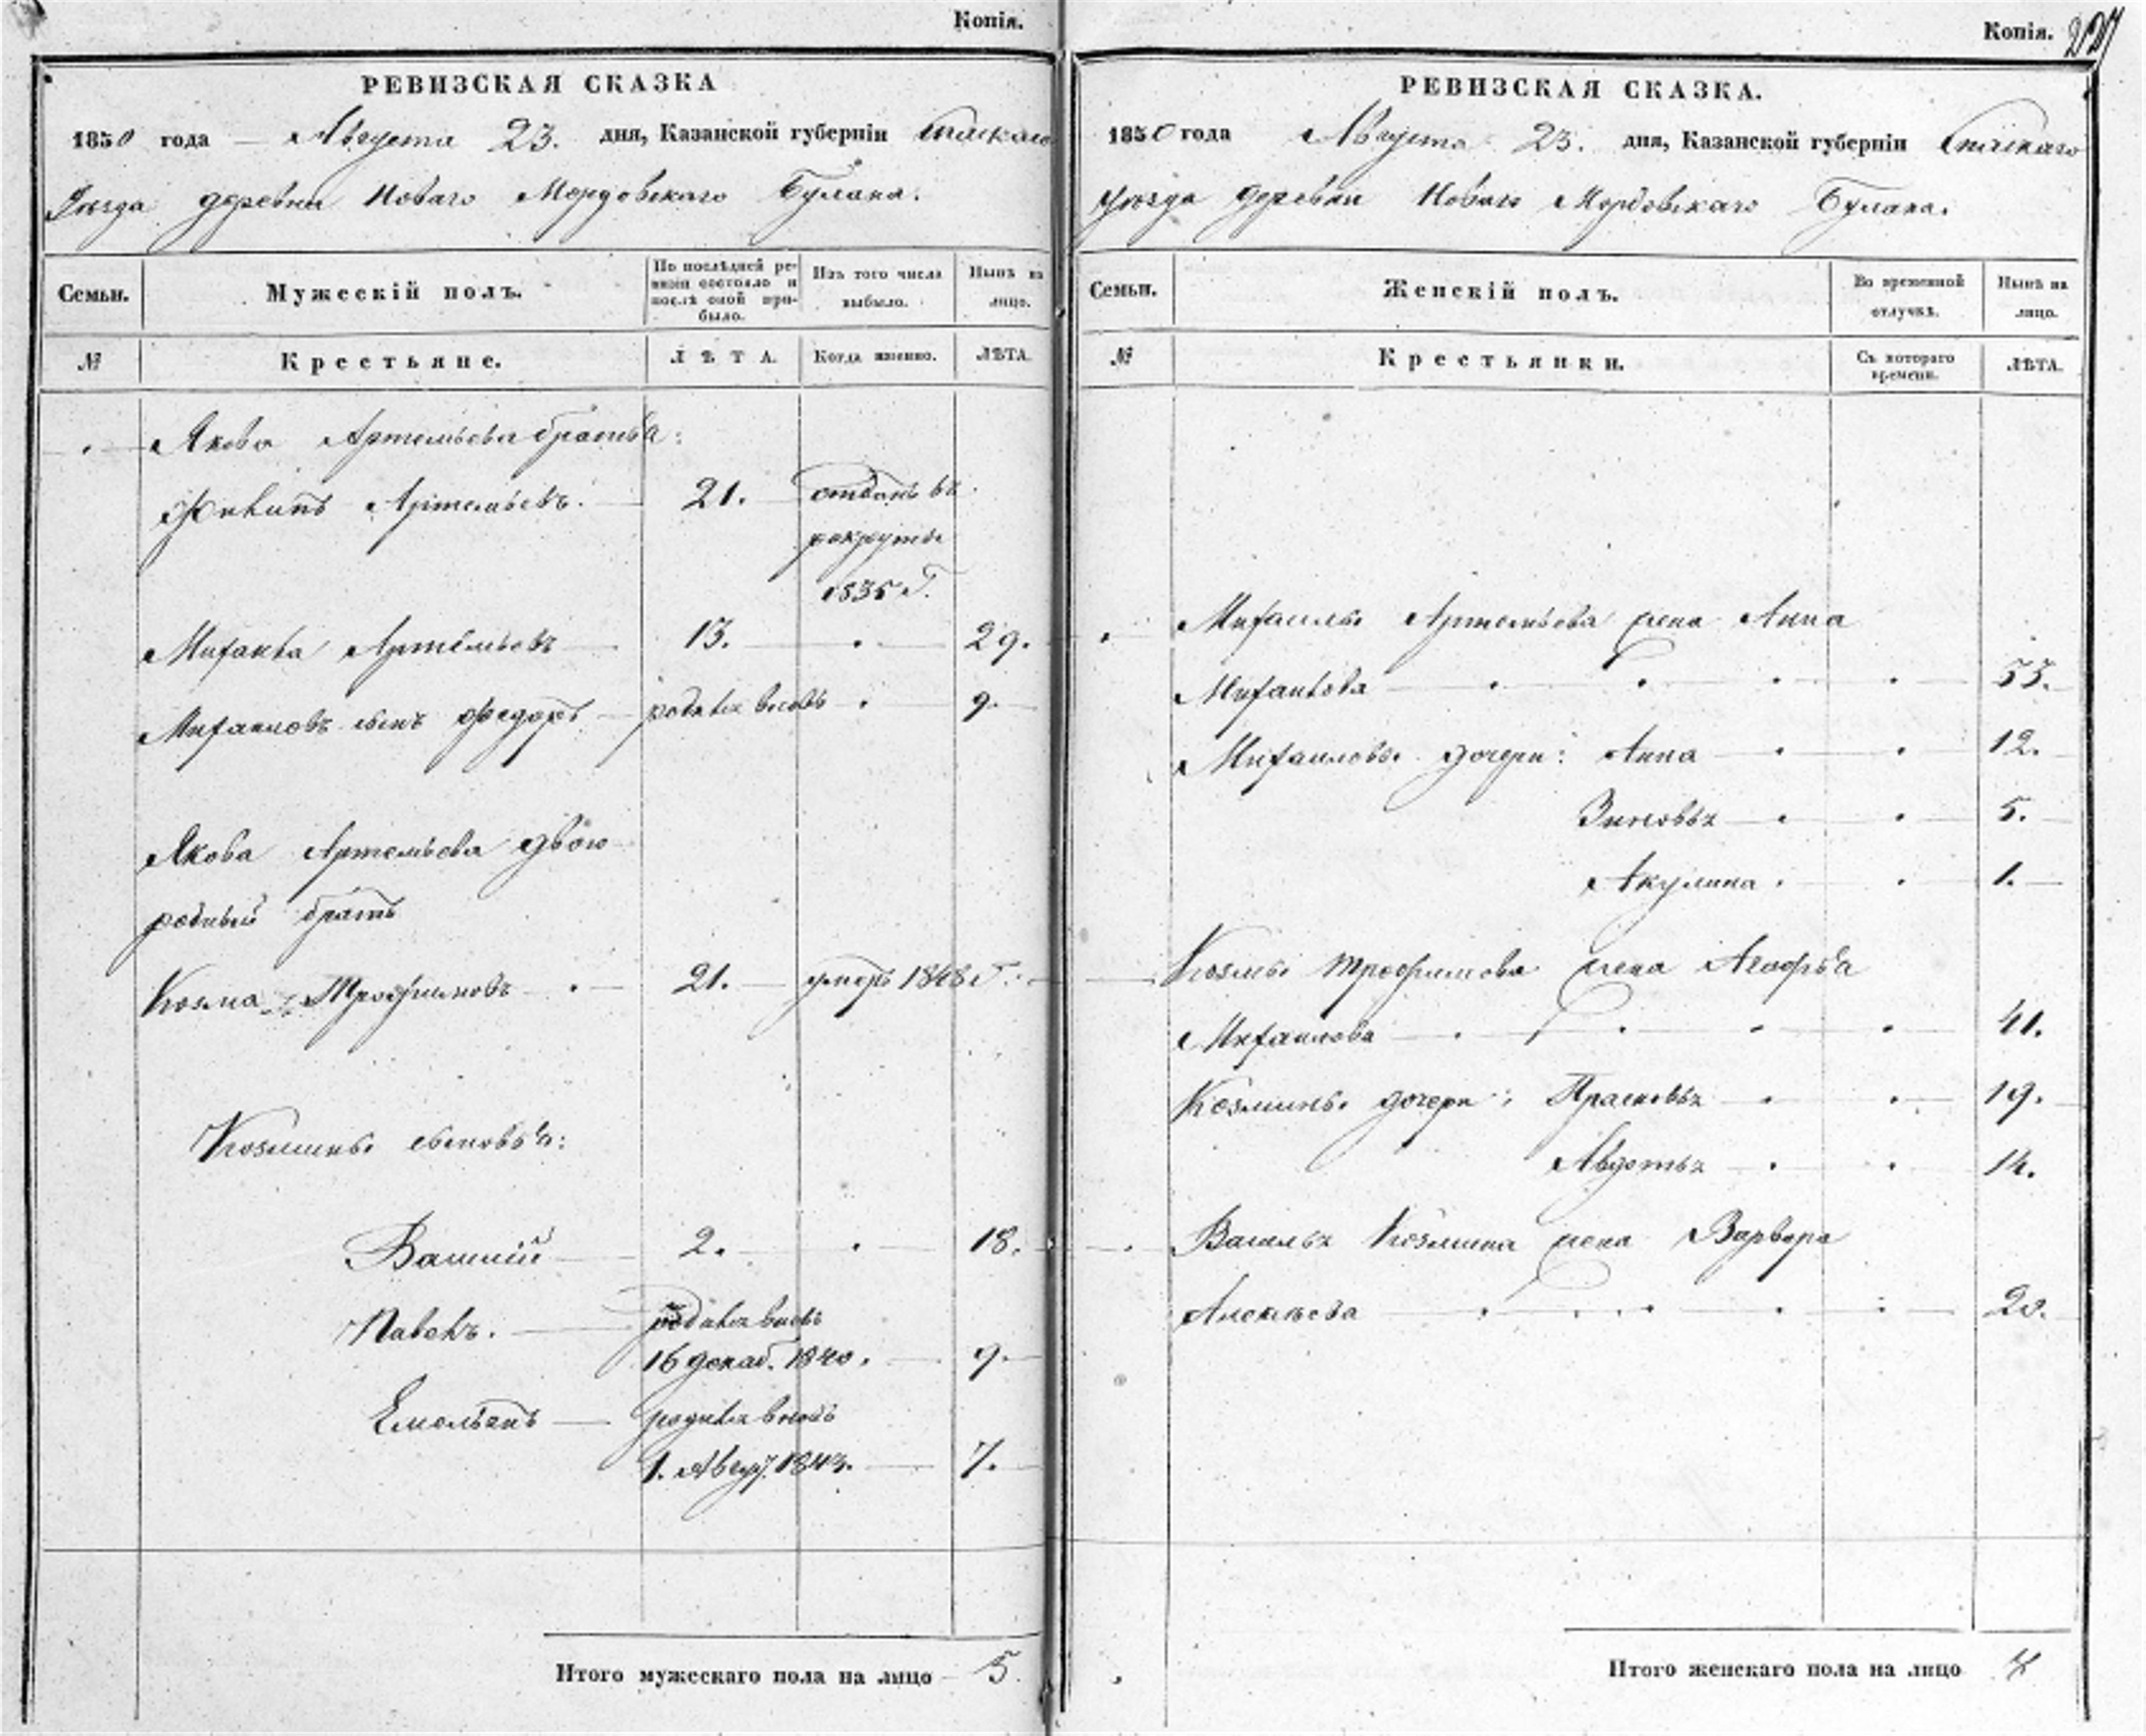 Копія.
РЕВИЗСКАЯ СКАЗКА
1850 года — Августа 23. дня, Казанской губерніи Спаскаго
Уѣзда деревни Новаго Мордовскаго Булака.
Семьи.
Мужескій полъ.
По послѣдней ре-
визіи состояло и
послѣ оной при-
было.
Изъ того числа
выбыло.
Нынѣ на
лицо.
№
Крестьяне.
ЛѢТА.
Когда именно.
ЛѢТА.
Якова Артемьева братья:
Филипъ Артемьевъ. 21. отданъ въ
рекруты
1835 г.
Михаила Артемьевъ 13. 29.
Михаиловъ сынъ Федоръ родился вновь 9.
Якова Артемьева двою
родный братъ
Козма Трофимовъ 21. умеръ 1848 г.
Козмины сыновья:
Василий 2. 18.
Павелъ. родился вновь
16 декаб. 1840. 9.
Емельянъ родился вновь
1. Авгу. 1843. 7.
Итого мужескаго пола на лицо 5.
Копія.
РЕВИЗСКАЯ СКАЗКА.
1850 года Августа 23. дня, Казанской губерніи Спаскаго
уѣзда деревни Новаго Мордовскаго Булака.
Семьи.
Женскій полъ.
Во временной
отлучкѣ.
Нынѣ на
лицо.
№
Крестьянки.
Съ котораго
времени.
ЛѢТА.
Михаилы Артемьева жена Анна
Михаилова 33.
Михаиловы дочери: Анна 12.
Зиновья 5.
Акулина 1.
Козмы Трофимова жена Агафья
Михаилова 41.
Козмины дочери: Прасковья 19.
Авдотья 14.
Василья Козмина жена Варвара
Алексѣева 20.
Итого женскаго пола на лицо 8